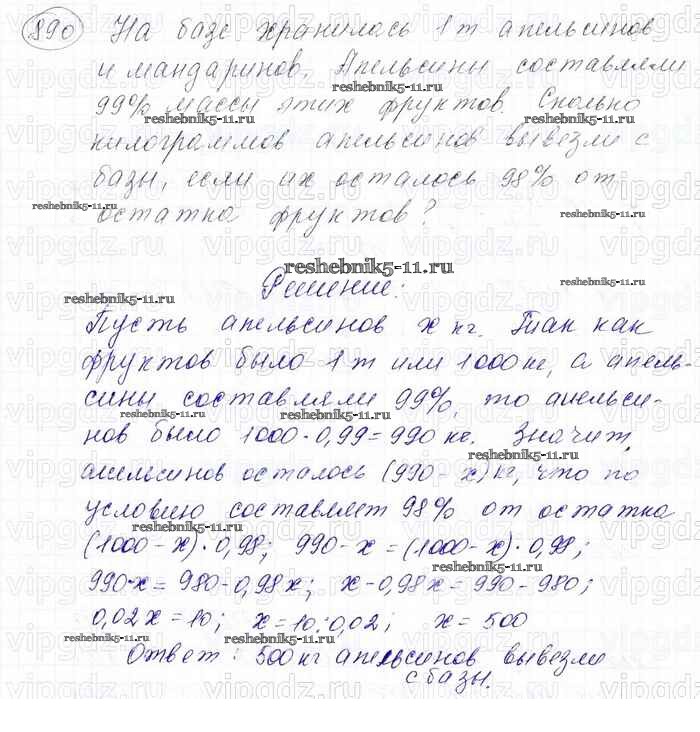 890 На базе хранилось 1 т апельсинов
и мандаринов. Апельсины составляли
99% массы этих фруктов. Сколько
килограммов апельсинов вывезли с
базы, если их осталось 98% от
остатка фруктов?
Решение:
Пусть апельсинов x кг. Так как
фруктов было 1 т или 1000 кг, а апель-
сины составляли 99%, то апельси-
нов было 1000·0,99=990 кг. Значит,
апельсинов осталось (990-x) кг, что по
условию составляет 98% от остатка
(1000-x)·0,98; 990-x=(1000-x)·0,98;
990-x=980-0,98x; x-0,98x=990-980;
0,02x=10; x=10:0,02; x=500
Ответ: 500 кг апельсинов вывезли
с базы.
reshebnik5-11.ru
vipgdz.ru